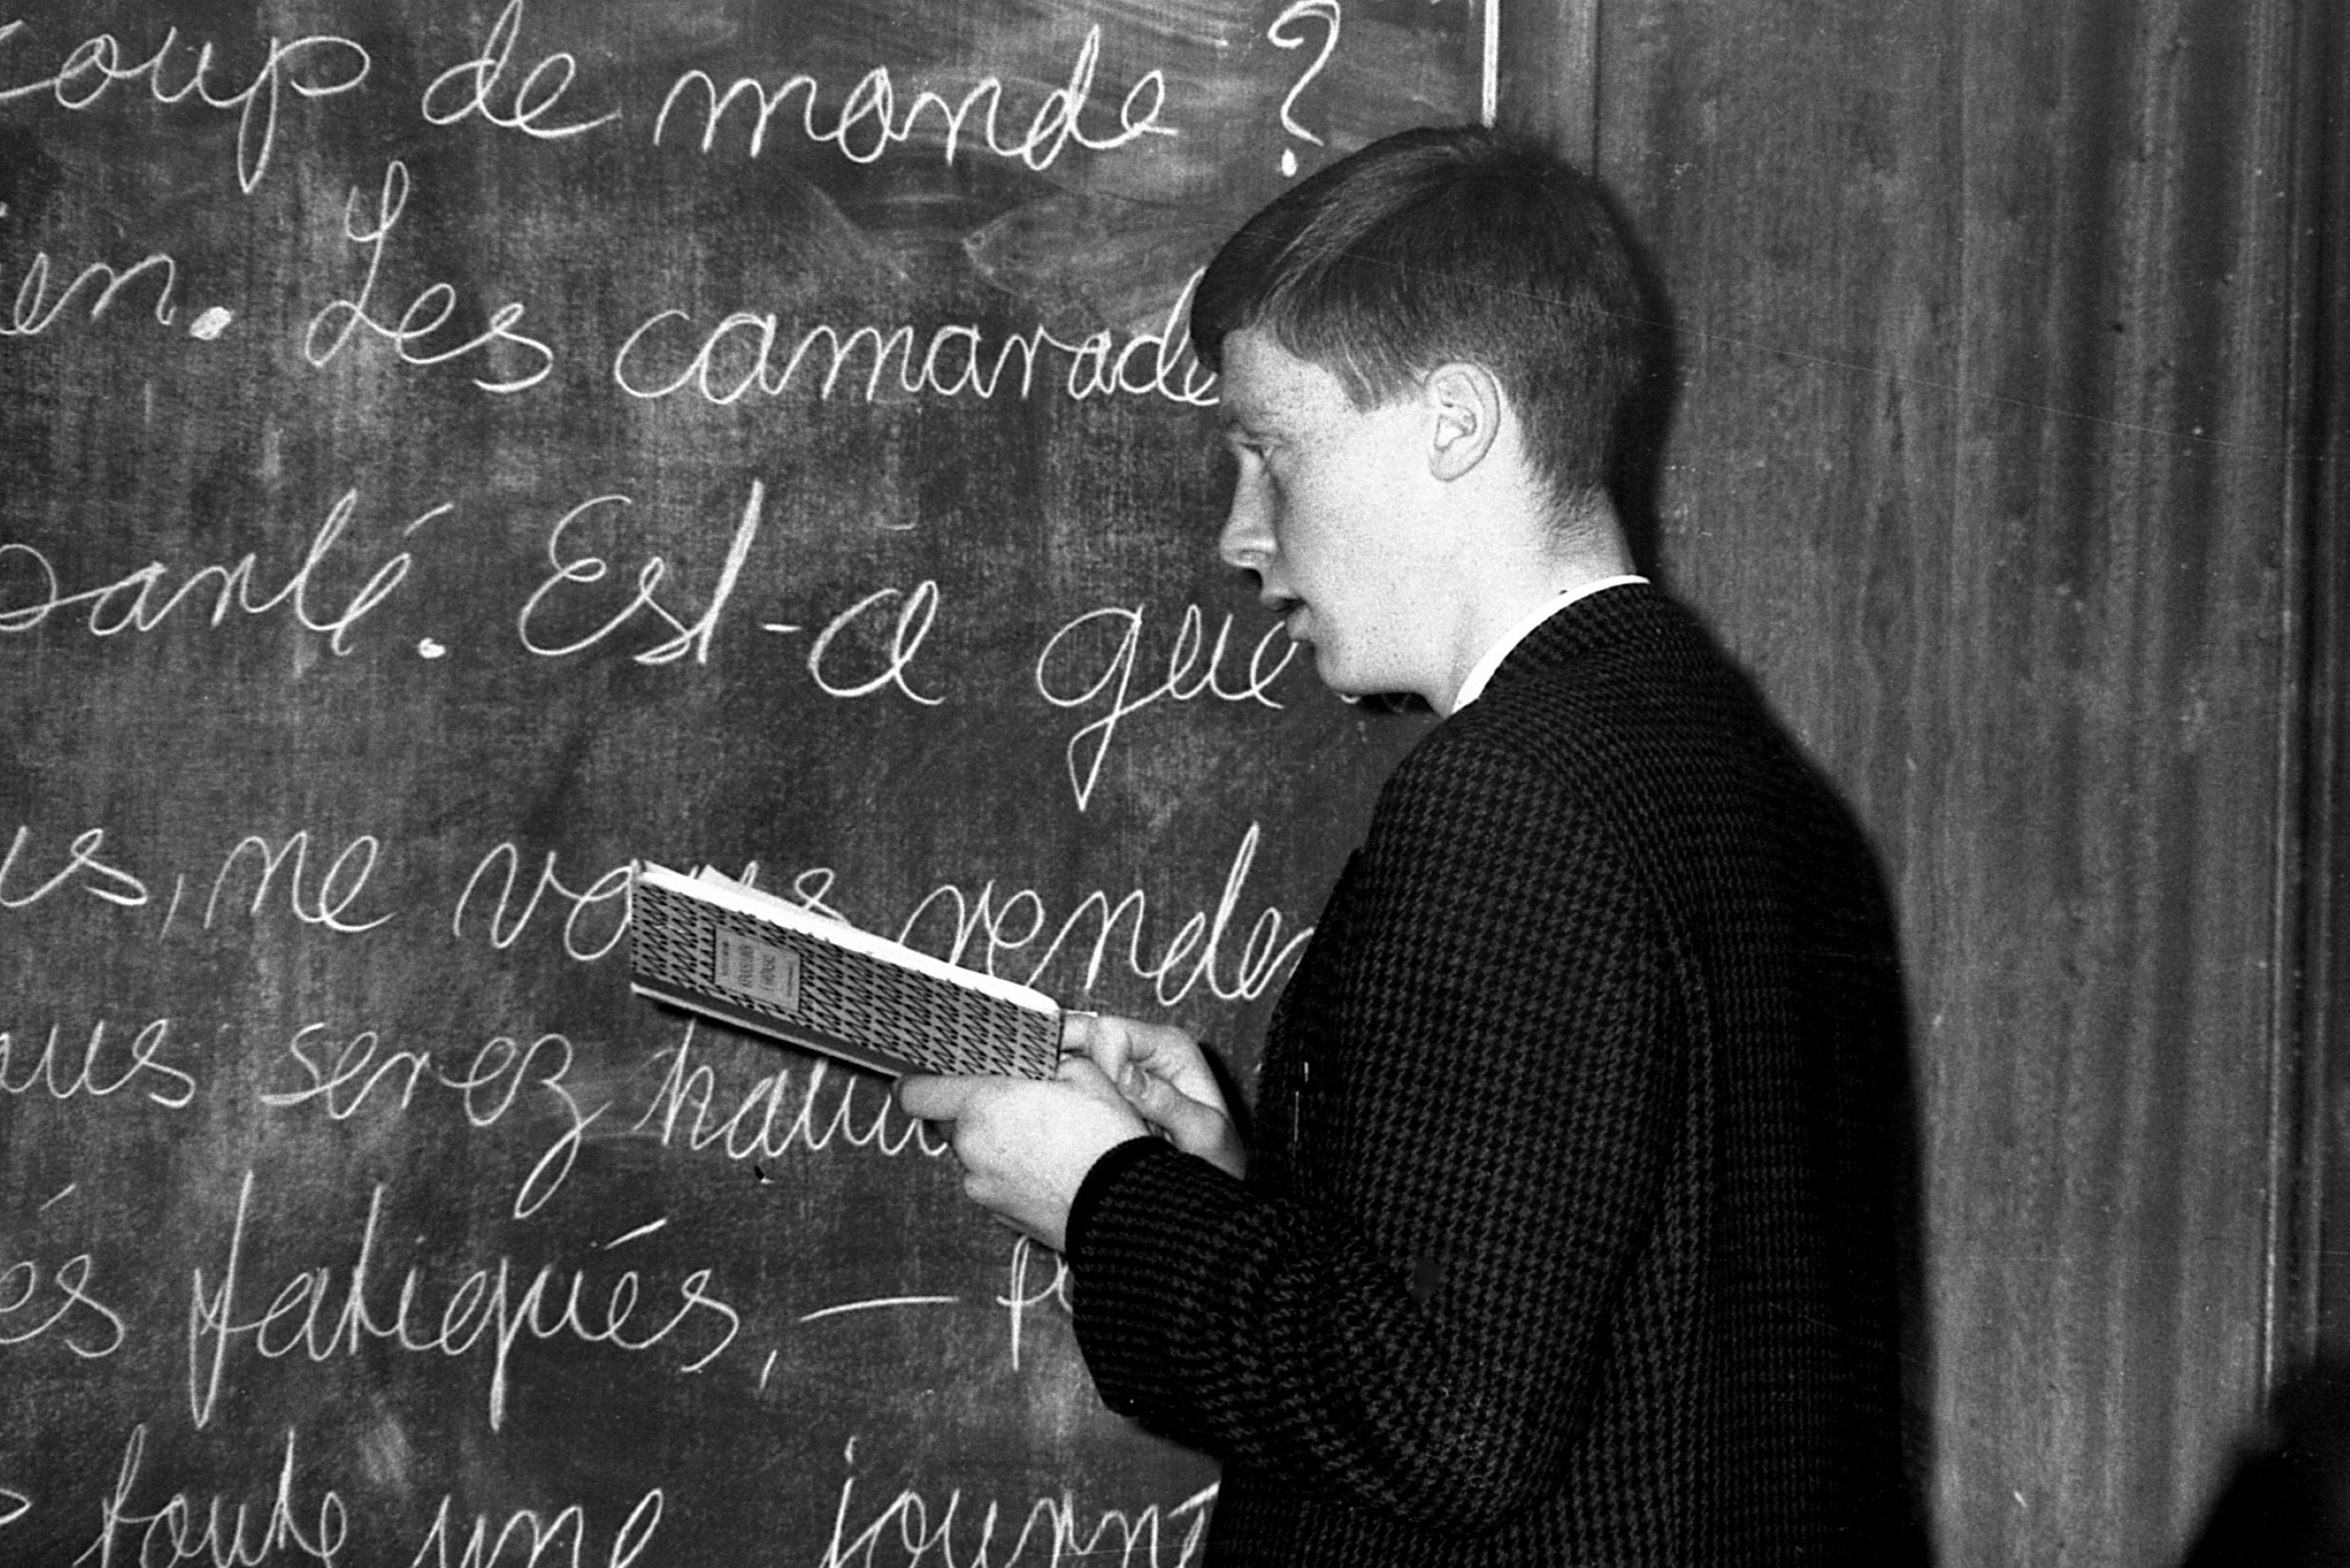 coup de monde ?
en. Les camarade
santé. Est-ce que
us, ne vous render
ous serez
és fatigués, —
toute une journé